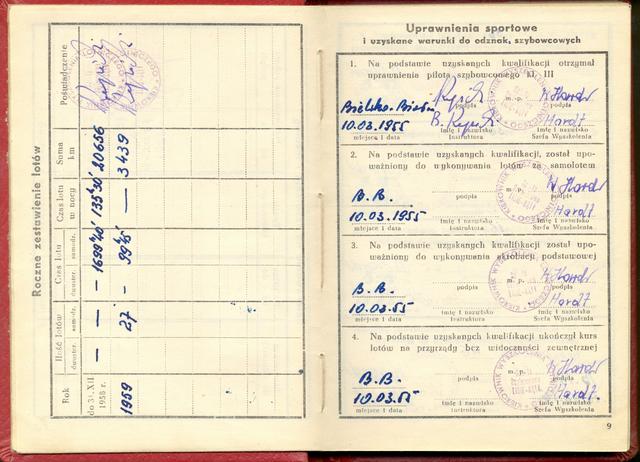 Roczne zestawienie lotów
Rok
Ilość lotów
dwuster.
samodz.
Czas lotu
dwuster.
samodz.
Czas lotu w nocy
Suma km
Poświadczenie
do 31.XII 1958 r.
—
—
—
1699h40'
135h30'
20656
1959
—
27
—
99h45'
—
3439
Uprawnienia sportowe
i uzyskane warunki do odznak, szybowcowych
1. Na podstawie uzyskanych kwalifikacji otrzymał
uprawnienia pilota szybowcowego kl. III
Bielsko-Biała
10.03.1955
miejsce i data
m. p.
podpis
imię i nazwisko
Instruktora
Hardt
imię i nazwisko
Szefa Wyszkolenia
2. Na podstawie uzyskanych kwalifikacji, został upo-
ważniony do wykonywania lotów za samolotem
B.B.
10.03.1955
miejsce i data
podpis
imię i nazwisko
Instruktora
podpis
Hardt
imię i nazwisko
Szefa Wyszkolenia
3. Na podstawie uzyskanych kwalifikacji, został upo-
ważniony do wykonywania akrobacji podstawowej
B.B.
10.03.55
miejsce i data
podpis
imię i nazwisko
Instruktora
podpis
Hardt
imię i nazwisko
Szefa Wyszkolenia
4. Na podstawie uzyskanych kwalifikacji ukończył kurs
lotów na przyrządy bez widoczności zewnętrznej
B.B.
10.03.55
miejsce i data
podpis
imię i nazwisko
Instruktora
m. p.
podpis
Hardt.
imię i nazwisko
Szefa Wyszkolenia
9